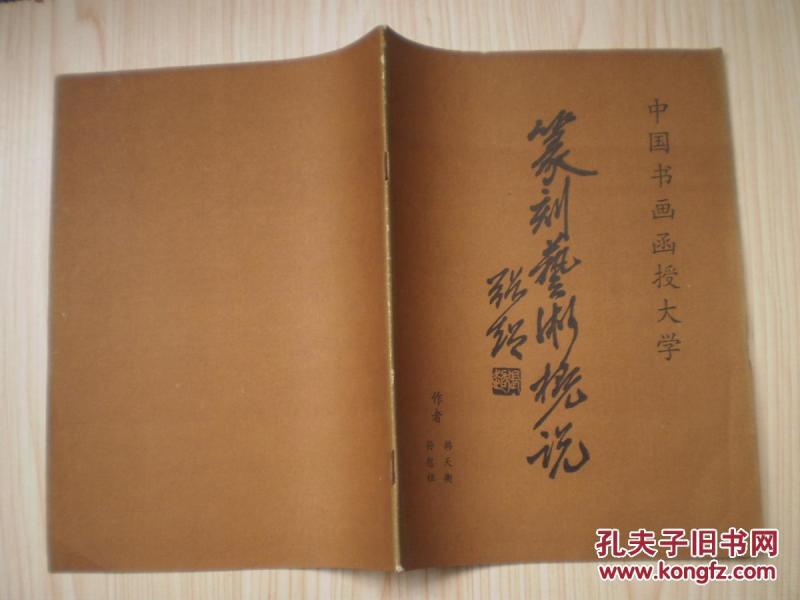 中国书画函授大学
篆刻藝術概说
张超
作者
韩天衡
孙慰祖
孔夫子旧书网
www.kongfz.com